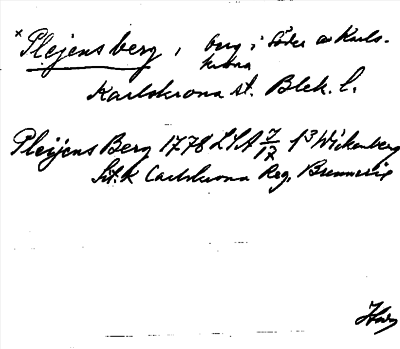 × Plejens berg, berg i Söder av Karls-
krona
Karlskrona st. Blek. l.
Pleijens Berg 1778 LSA 7/17 f³ Wickenberg
Sit. K Carlskrona Reg. Brännerie